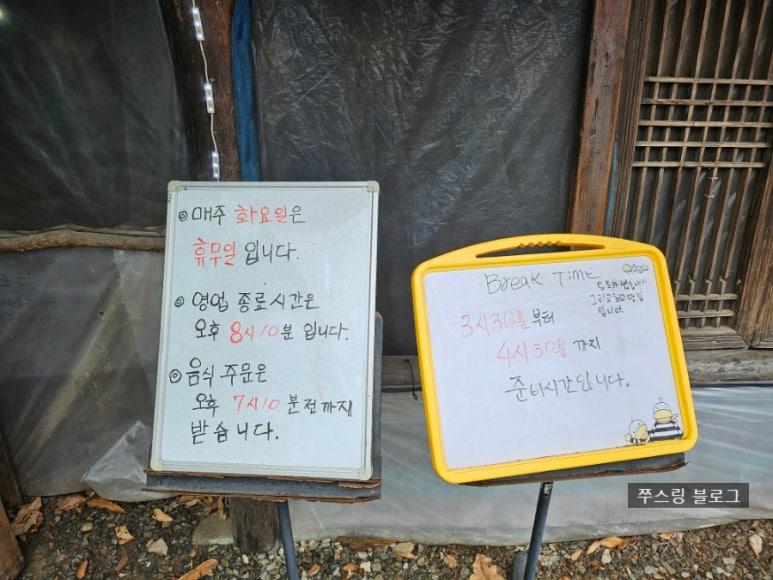 ◎ 매주 화요일은
휴무일 입니다.
◎ 영업 종료시간은
오후 8시10분 입니다.
◎ 음식 주문은
오후 7시10분전까지
받습니다.
Break Time
3시30분부터
4시30분까지
준비시간입니다.
쭈스링 블로그